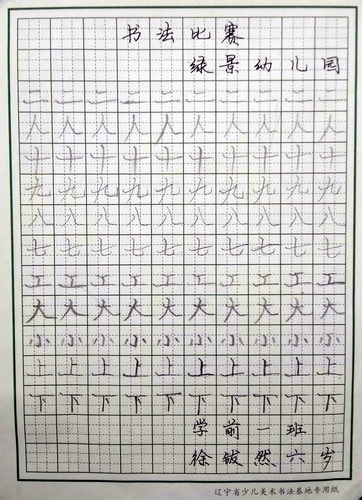 书法比赛
绿景幼儿园
二二二二二二二二二二
人人人人人人人人人人
十十十十十十十十十十
九九九九九九九九九九
八八八八八八八八八八
七七七七七七七七七七
工工工工工工工工工工
大大大大大大大大大大
小小小小小小小小小小
上上上上上上上上上上
下下下下下下下下下下
学前一班
徐钹然六岁
辽宁省少儿美术书法基地专用纸